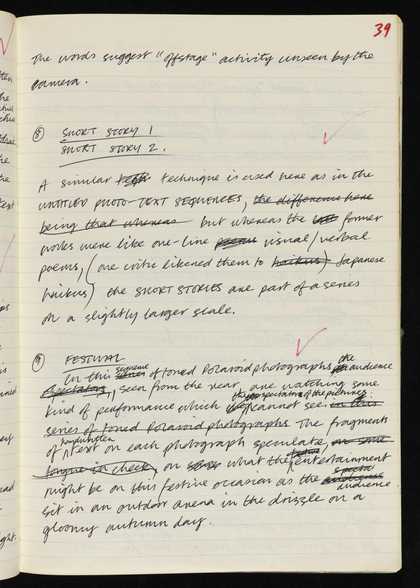 39
The words suggest "offstage" activity unseen by the
camera.
8 SHORT STORY 1
SHORT STORY 2.
A similar technique is used here as in the
UNTITLED PHOTO-TEXT SEQUENCES, the difference here
being that whereas but whereas the former
works were like one-line poems visual/verbal
poems, (one critic likened them to haikus) Japanese
haikus) the SHORT STORIES are part of a series
on a slightly larger scale.
9 FESTIVAL
In this sequence of toned Polaroid photographs the audience
spectators, seen from the rear, are watching some
kind of performance which the spectators of the pictures cannot see in this
series of toned Polaroid photographs. The fragments
of handwritten text on each photograph speculate, on some
tongue in cheek, on what the entertainment
might be on this festive occasion as the audience
sit in an outdoor arena in the drizzle on a
gloomy autumn day.